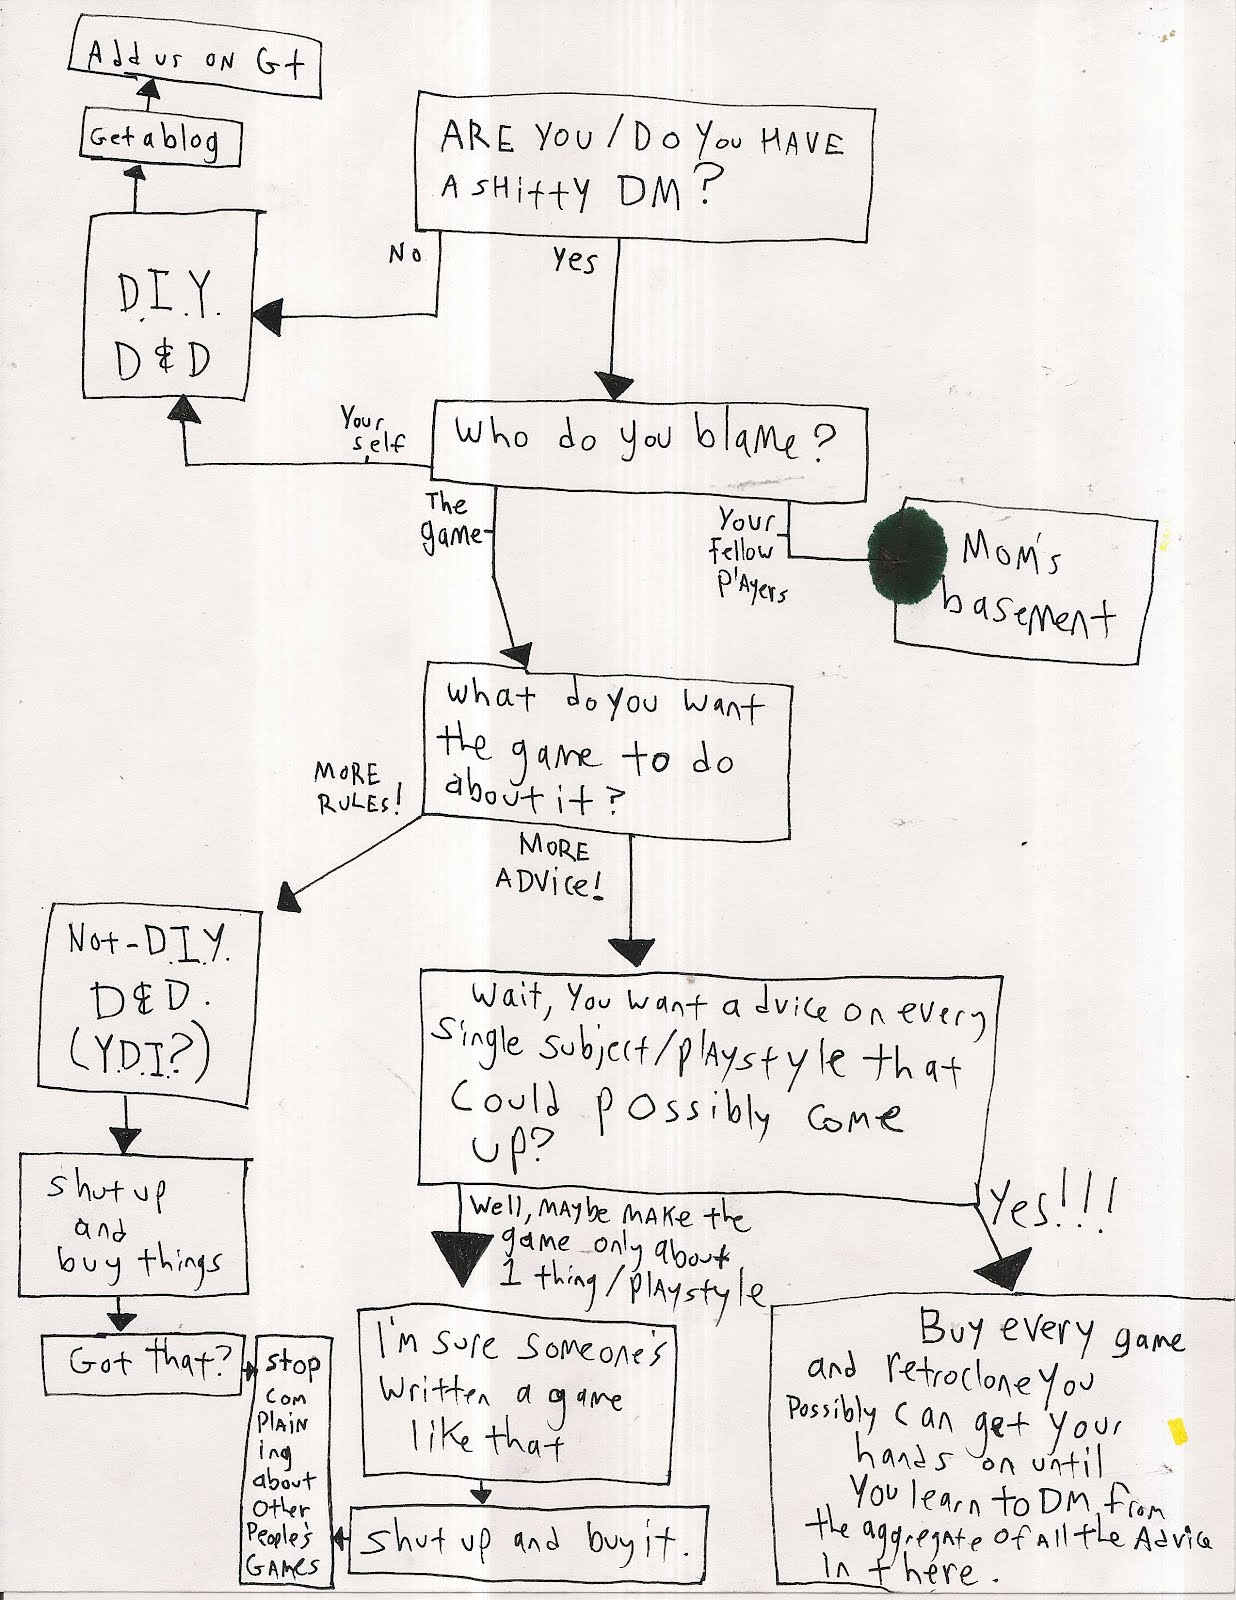 Add us on G+
Get a blog
ARE YOU / DO YOU HAVE
A SHITTY DM?
No
Yes
D.I.Y.
D&D
Your
self
Who do you blame?
The
game
Your
fellow
players
Mom's
basement
What do you want
the game to do
about it?
MORE
RULES!
MORE
ADVICE!
Not-D.I.Y.
D&D.
(Y.D.I.?)
Wait, you want advice on every
single subject/playstyle that
could possibly come
up?
Shut up
and
buy things
Well, maybe make the
game only about
1 thing/playstyle
Yes!!!
Got that?
Stop
com
plain
ing
about
other
people's
games
I'm sure someone's
written a game
like that
Shut up and buy it.
Buy every game
and retroclone you
possibly can get your
hands on until
you learn to DM from
the aggregate of all the advice
in there.